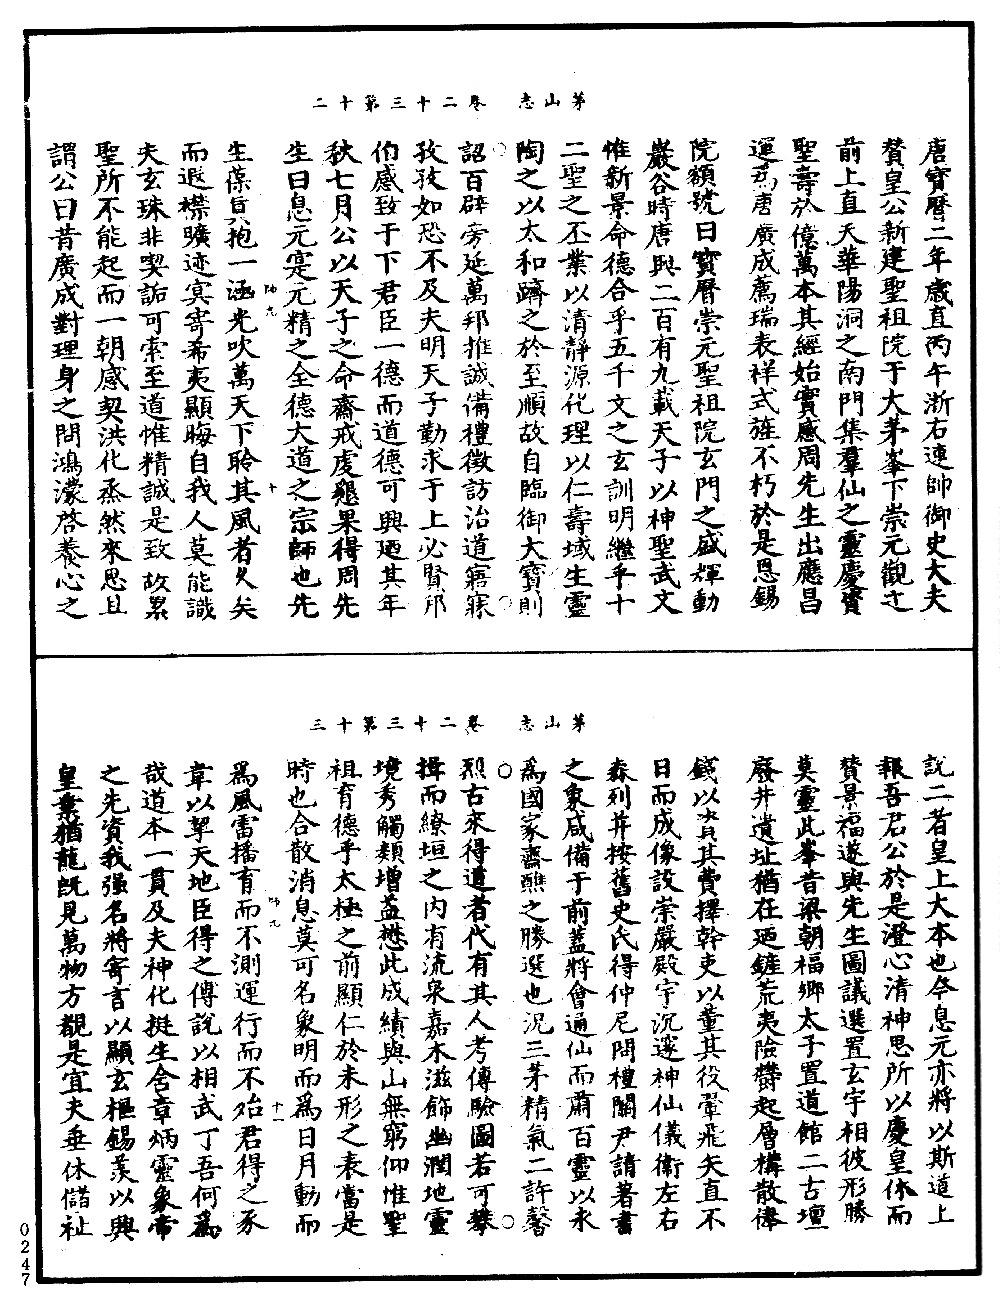 茅山志　卷二十三第十二
唐寶曆二年歲直丙午浙右連帥御史大夫
贊皇公新建聖祖院于大茅峯下崇元觀之
前上直天華陽洞之南門集羣仙之靈慶資
聖壽於億萬本其經始實感周先生出應昌
運爲唐廣成薦瑞表祥式旌不朽於是恩錫
院額號曰寶曆崇元聖祖院玄門之盛輝動
巖谷時唐興二百有九載天子以神聖武文
惟新景命德合乎五千文之玄訓明繼乎十
二聖之丕業以清靜源化理以仁壽域生靈
陶之以太和躋之於至順故自臨御大寶則
詔百辟旁延萬邦推誠備禮徵訪治道寤寐
孜孜如恐不及夫明天子勤求于上必賢邦
伯感致于下君臣一德而道德可興廼其年
秋七月公以天子之命齋戒虔懇果得周先
生曰息元寔元精之全德大道之宗師也先
生葆真抱一涵光吹萬天下聆其風者久矣
而遐襟曠迹冥寄希夷顯晦自我人莫能識
夫玄珠非喫詬可索至道惟精誠是致故累
聖所不能起而一朝感契洪化烝然來思且
謂公曰昔廣成對理身之問鴻濛啓養心之
茅山志　卷二十三第十三
說二者皇上大本也今息元亦將以斯道上
報吾君公於是澄心清神思所以慶皇休而
贊景福遂與先生圖議選置玄宇相彼形勝
莫靈此峯昔梁朝福鄉太子置道館二古壇
廢井遺址猶在廼鏟荒夷險欝起層構散俸
錢以資其費擇幹吏以董其役翬飛矢直不
日而成像設崇嚴殿宇沉邃神仙儀衛左右
森列并按舊史氏得仲尼問禮關尹請著書
之象咸備于前蓋將會通仙而肅百靈以永
爲國家齋醮之勝選也況三茅精氣二許馨
烈古來得道者代有其人考傳驗圖若可攀
揖而繚垣之內有流泉嘉木滋飾幽潤地靈
境秀觸類增益懋此成績與山無窮仰惟聖
祖育德乎太極之前顯仁於未形之表當是
時也合散消息莫可名象明而爲日月動而
爲風雷播育而不測運行而不殆君得之豕
韋以挈天地臣得之傅說以相武丁吾何爲
哉道本一貫及夫神化挺生含章炳靈象帝
之先資我強名將寄言以顯玄樞錫羨以興
皇業猶龍既見萬物方覩是宜夫垂休儲祉
0247